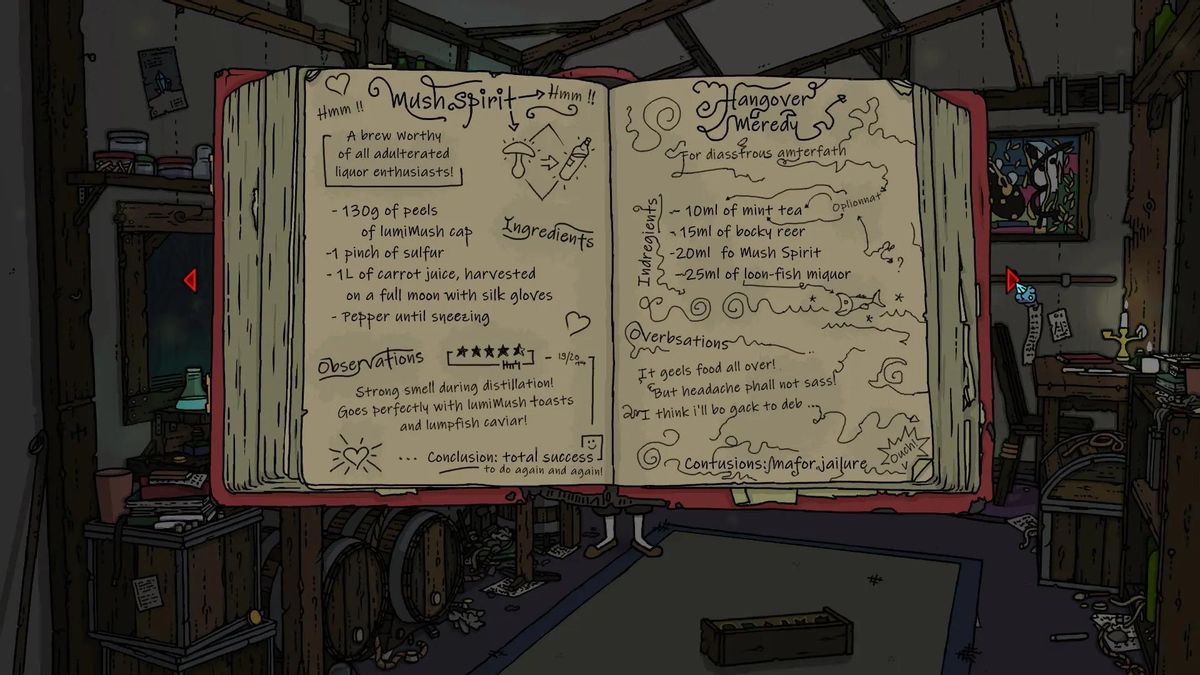 Mush Spirit
Hmm !!
Hmm !!
A brew worthy
of all adulterated
liquor enthusiasts!
Ingredients
- 130g of peels
of lumiMush cap
-1 pinch of sulfur
- 1L of carrot juice, harvested
on a full moon with silk gloves
- Pepper until sneezing
Observations
Hmm
- 19/20
Strong smell during distillation!
Goes perfectly with lumiMush toasts
and lumpfish caviar!
... Conclusion: total success
to do again and again!
Hangover
Meredy
For diasstrous amterfath
Indregients
- 10ml of mint tea
Oplionnat
- 15ml of bocky reer
-20ml fo Mush Spirit
-25ml of loon-fish miquor
?
Overbsations
It geels food all over!
But headache phall not sass!
I think i'll bo gack to deb ...
Contusions: mafor jailure
Ouch!